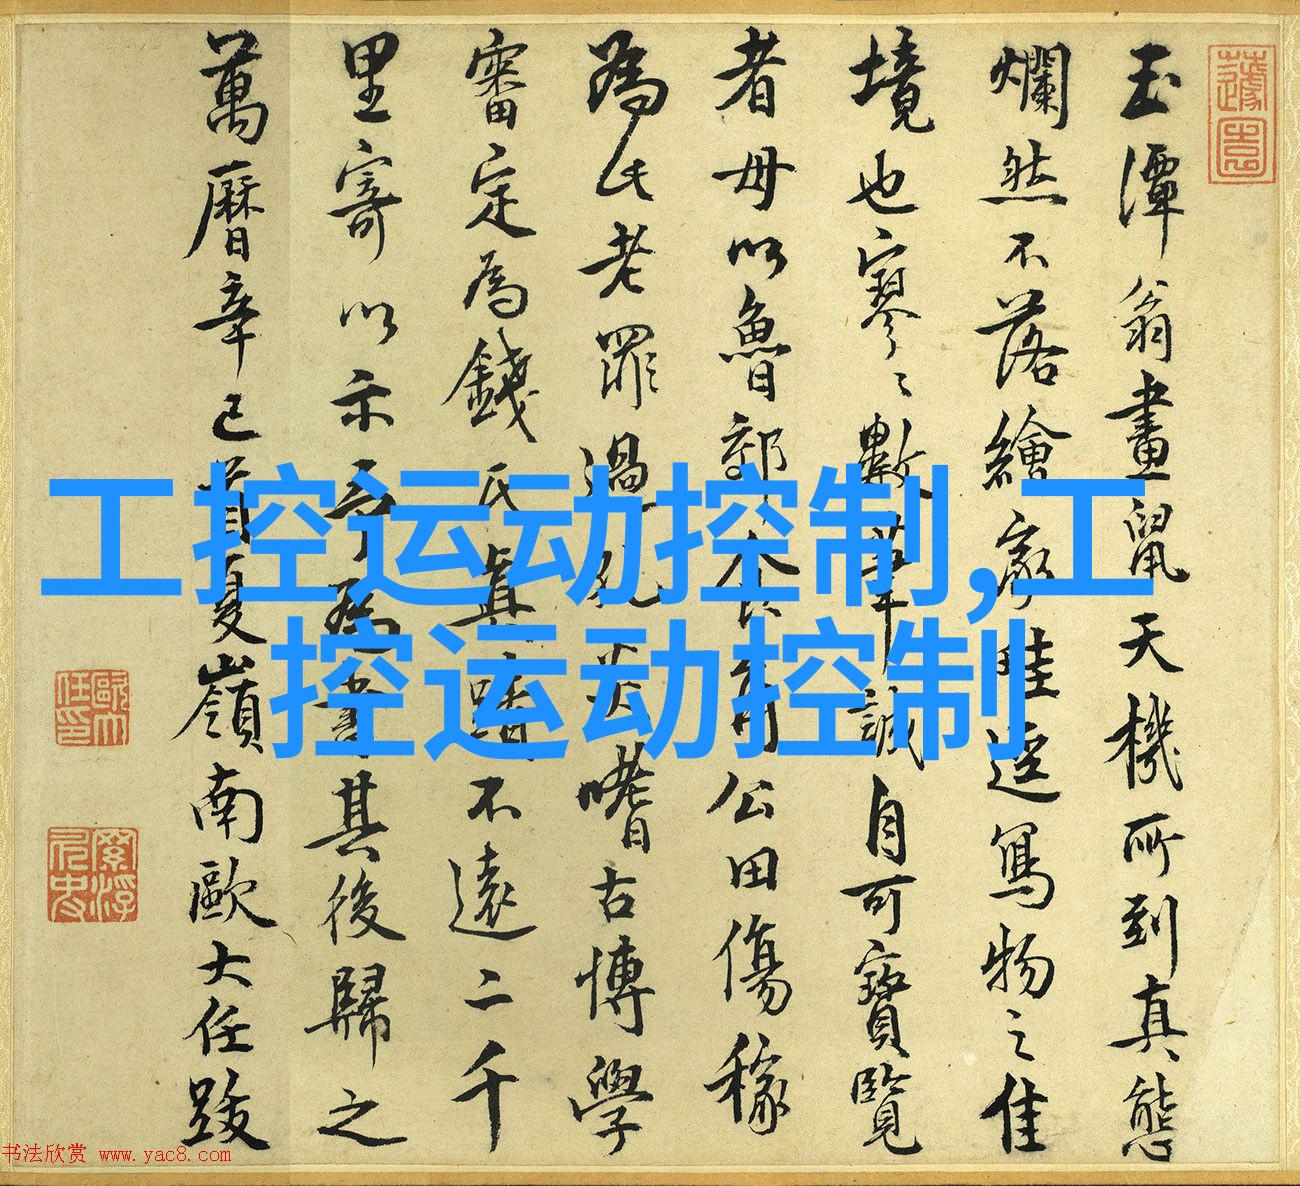 玉潭翁畫鼠天機所到真態
爛然不落繪家畦逕寫物之佳
境也寥〻數筆誠自可寶覽
者毋以魯郭公田傷稼
為氏老罪過也嗜古博學
審定為錢氏真蹟不遠二千
里寄以示予為書其後歸之
萬曆辛巳首夏嶺南歐大任跋
工控运动控制,工
控运动控制
书法欣赏 www.yac8.com